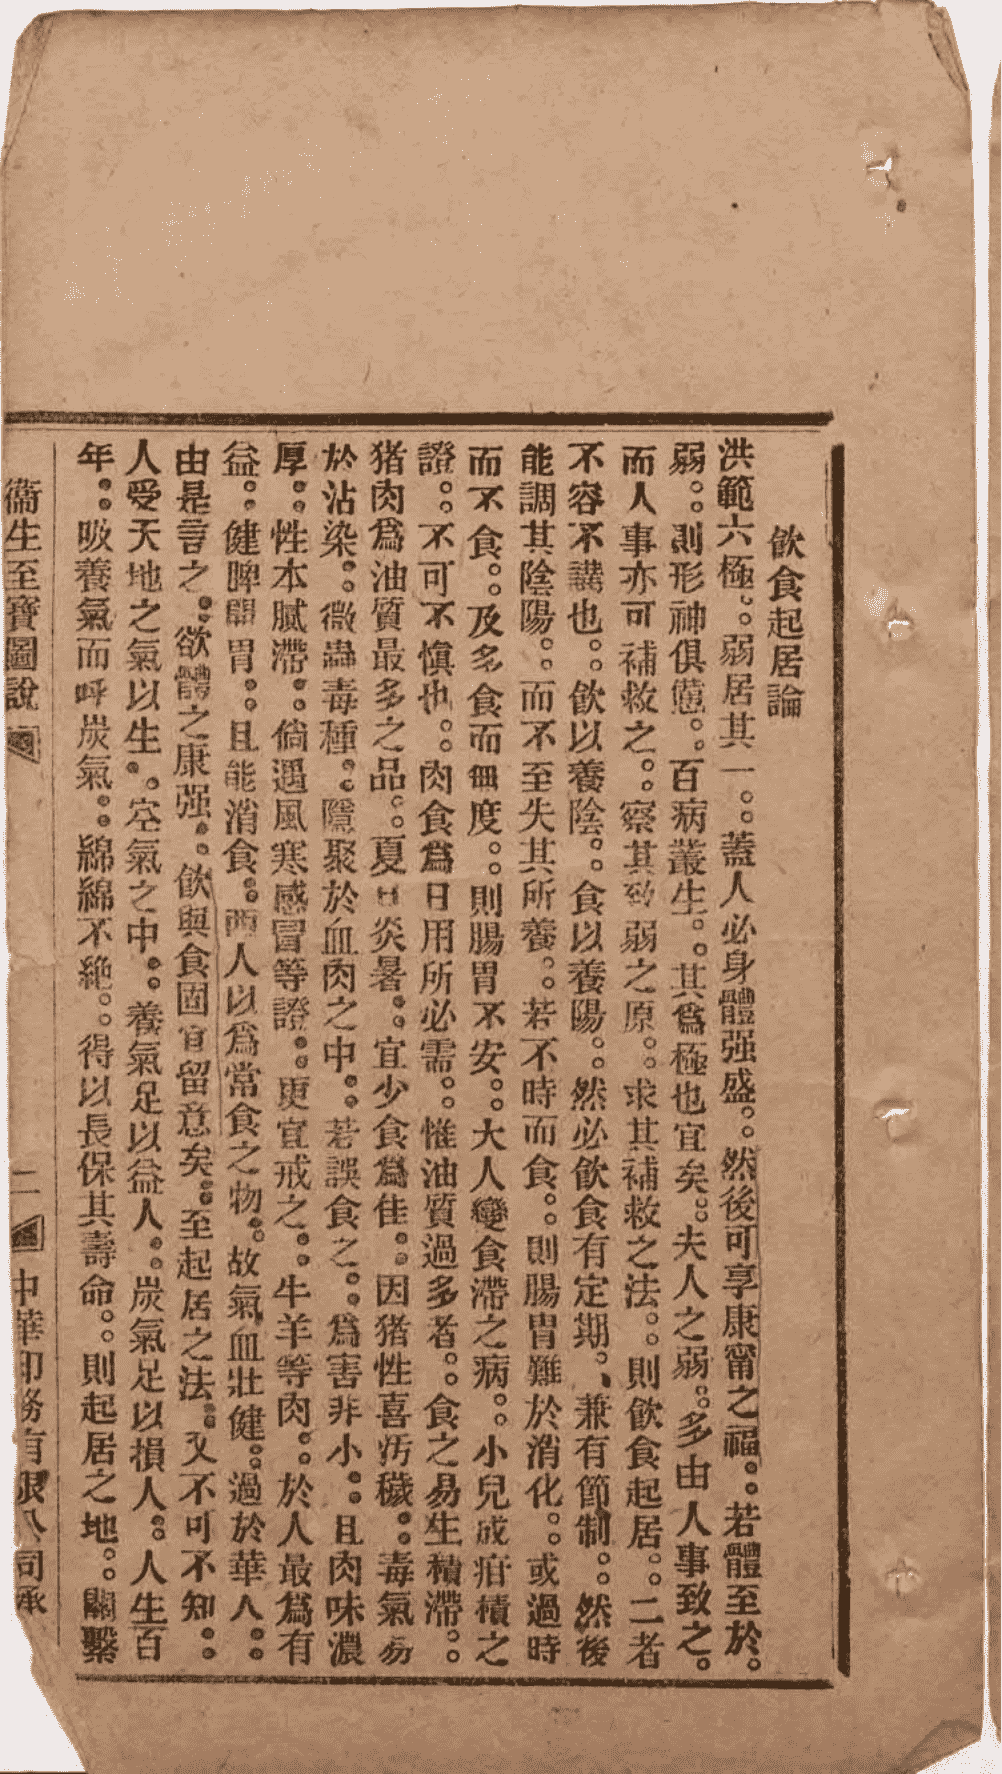 飲食起居論
洪範六極。。弱居其一。。蓋人必身體强盛。。然後可享康甯之福。。若體至於。
弱。。則形神俱憊。。百病叢生。。其爲極也宜矣。。夫人之弱。。多由人事致之。
而人事亦可補救之。。察其致弱之原。。求其補救之法。。則飲食起居。。二者
不容不講也。。飲以養陰。。食以養陽。。然必飲食有定期、、兼有節制。。然後
能調其陰陽。。而不至失其所養。。若不時而食。。則腸胃難於消化。。或過時
而不食。。及多食而無度。。則腸胃不安。。大人變食滯之病。。小兒成疳積之
證。。不可不愼也。。肉食爲日用所必需。。惟油質過多者。。食之易生積滯。。
猪肉爲油質最多之品。。夏日炎暑。。宜少食爲佳。。因猪性喜汚穢。。毒氣易
於沾染。。微蟲毒種。。隱聚於血肉之中。。若誤食之。。爲害非小。。且肉味濃
厚。。性本膩滯。。倘遇風寒感冒等證。。更宜戒之。。牛羊等肉。。於人最爲有
益。。健脾開胃。。且能消食。。西人以爲常食之物。。故氣血壯健。。過於華人。。
由是言之。。欲體之康强。。飲與食固宜留意矣。。至起居之法。。又不可不知。。
人受天地之氣以生。。空氣之中。。養氣足以益人。。炭氣足以損人。。人生百
年。。吸養氣而呼炭氣。。綿綿不絶。。得以長保其壽命。。則起居之地。。關繫
衞生至寶圖說 二 中華印務有限公司承